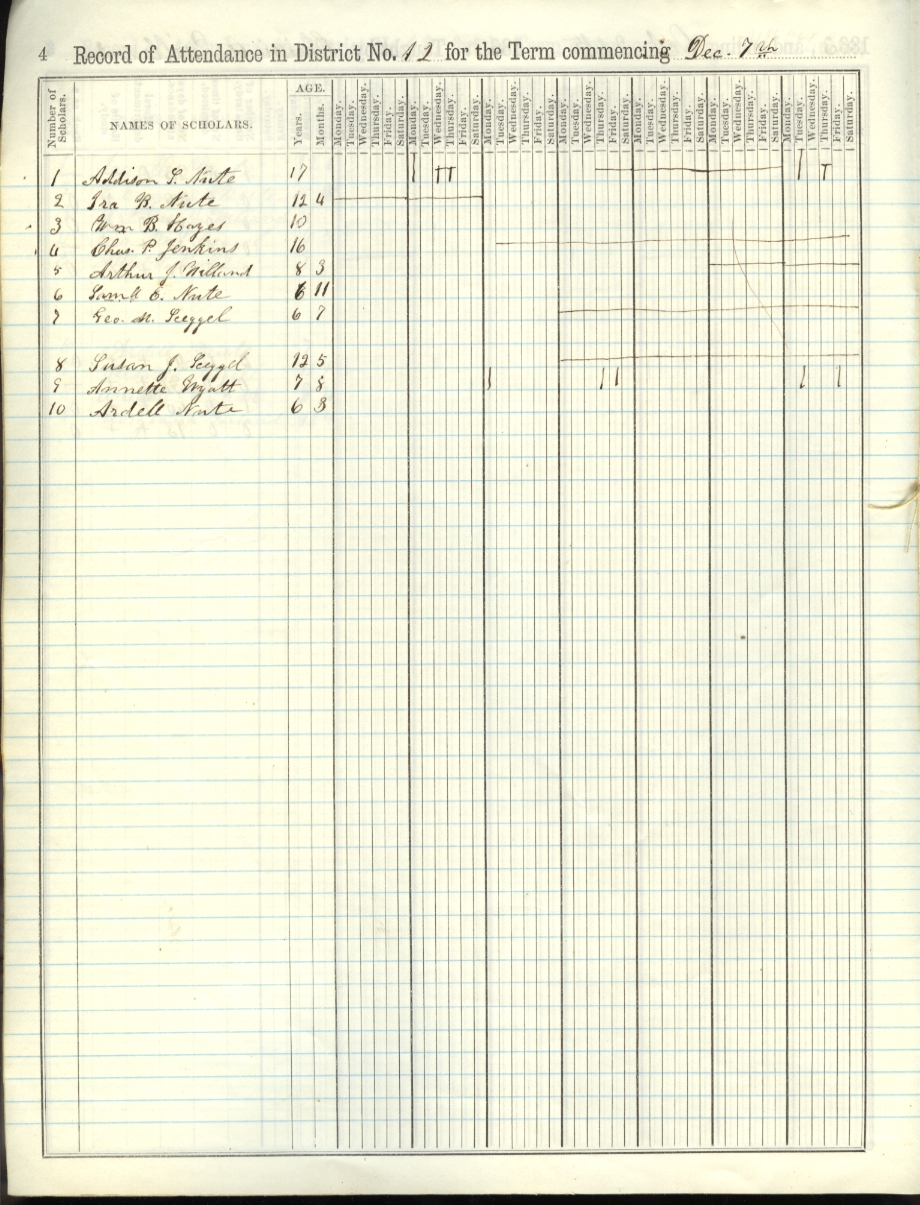 4 Record of Attendance in District No. 12 for the Term commencing Dec. 7th
Number of Scholars. NAMES OF SCHOLARS. AGE. Years. Months. Monday. Tuesday. Wednesday. Thursday. Friday. Saturday. Monday. Tuesday. Wednesday. Thursday. Friday. Saturday. Monday. Tuesday. Wednesday. Thursday. Friday. Saturday. Monday. Tuesday. Wednesday. Thursday. Friday. Saturday. Monday. Tuesday. Wednesday. Thursday. Friday. Saturday. Monday. Tuesday. Wednesday. Thursday. Friday. Saturday. Monday. Tuesday. Wednesday. Thursday. Friday. Saturday.
1 Addison S. Nute 17 T T T
2 Ira B. Nute 12 4
3 Wm B. Hayes 10
4 Chas. P. Jenkins 16
5 Arthur J. Willand 8 3
6 Samll E. Nute 6 11
7 Geo. M. Seeggel 6 7
8 Susan J. Seeggel 12 5
9 Annette Wyatt 7 8
10 Ardell Nute 6 3